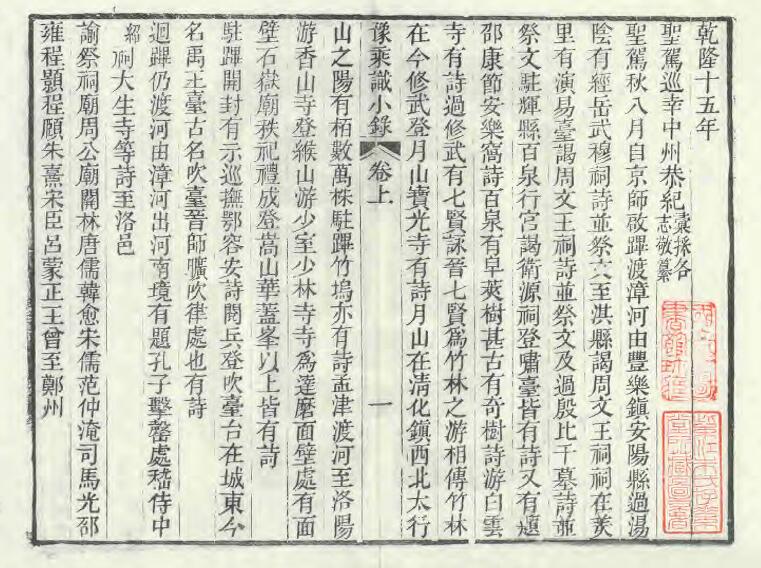 乾隆十五年
聖駕巡幸中州恭紀彙採各志敬纂
聖駕秋八月自京師啟蹕渡漳河由豐樂鎮安陽縣過湯
陰有經岳武穆祠詩並祭文至淇縣謁周文王祠祠在羑
里有演易臺謁周文王祠詩並祭文及過殷比干墓詩並
祭文駐輝縣百泉行宮謁衛源祠登嘯臺皆有詩又有題
邵康節安樂窩詩百泉有皁莢樹甚古有奇樹詩游白雲
寺有詩過修武有七賢詠晉七賢爲竹林之游相傳竹林
在今修武登月山寶光寺有詩月山在清化鎮西北太行
豫乘識小錄 卷上 一
山之陽有栢數萬株駐蹕竹塢亦有詩孟津渡河至洛陽
游香山寺登緱山游少室少林寺寺爲達磨面壁處有面
壁石嶽廟秩祀禮成登嵩山華蓋峯以上皆有詩
駐蹕開封有示巡撫鄂容安詩閱兵登吹臺台在城東今
名禹王臺古名吹臺晉師曠吹律處也有詩
迴蹕仍渡河由漳河出河南境有題孔子擊磬處嵇侍中
紹祠大生寺等詩至洛邑
諭祭祠廟周公廟關林唐儒韓愈宋儒范仲淹司馬光邵
雍程顥程頤朱熹宋臣呂蒙正王曾至鄭州